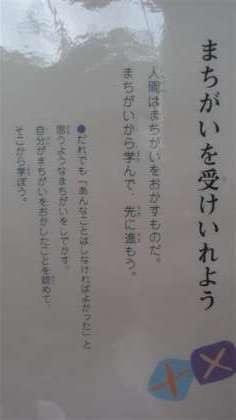 まちがいを受けいれよう
人間はまちがいをおかすものだ。
まちがいから学んで、先に進もう。
●だれでも「あんなことはしなければよかった」と
思うようなまちがいをしでかす。
自分がまちがいをおかしたことを認めて、
そこから学ぼう。